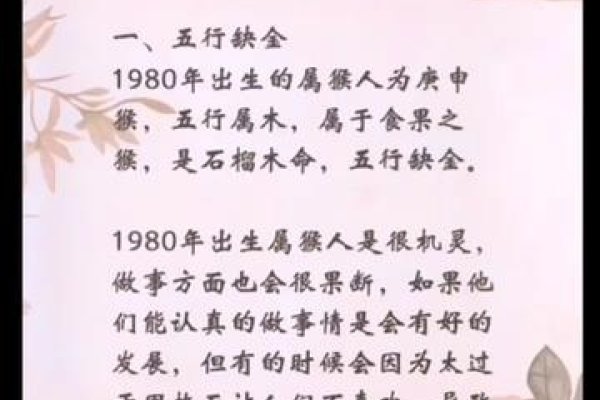 一、五行缺金
1980年出生的属猴人为庚申
猴，五行属木，属于食果之
猴，是石榴木命，五行缺金。
1980年出生属猴人是很机灵，
做事方面也会很果断，如果他
们能认真的做事情是会有好的
发展，但有的时候会因为太过